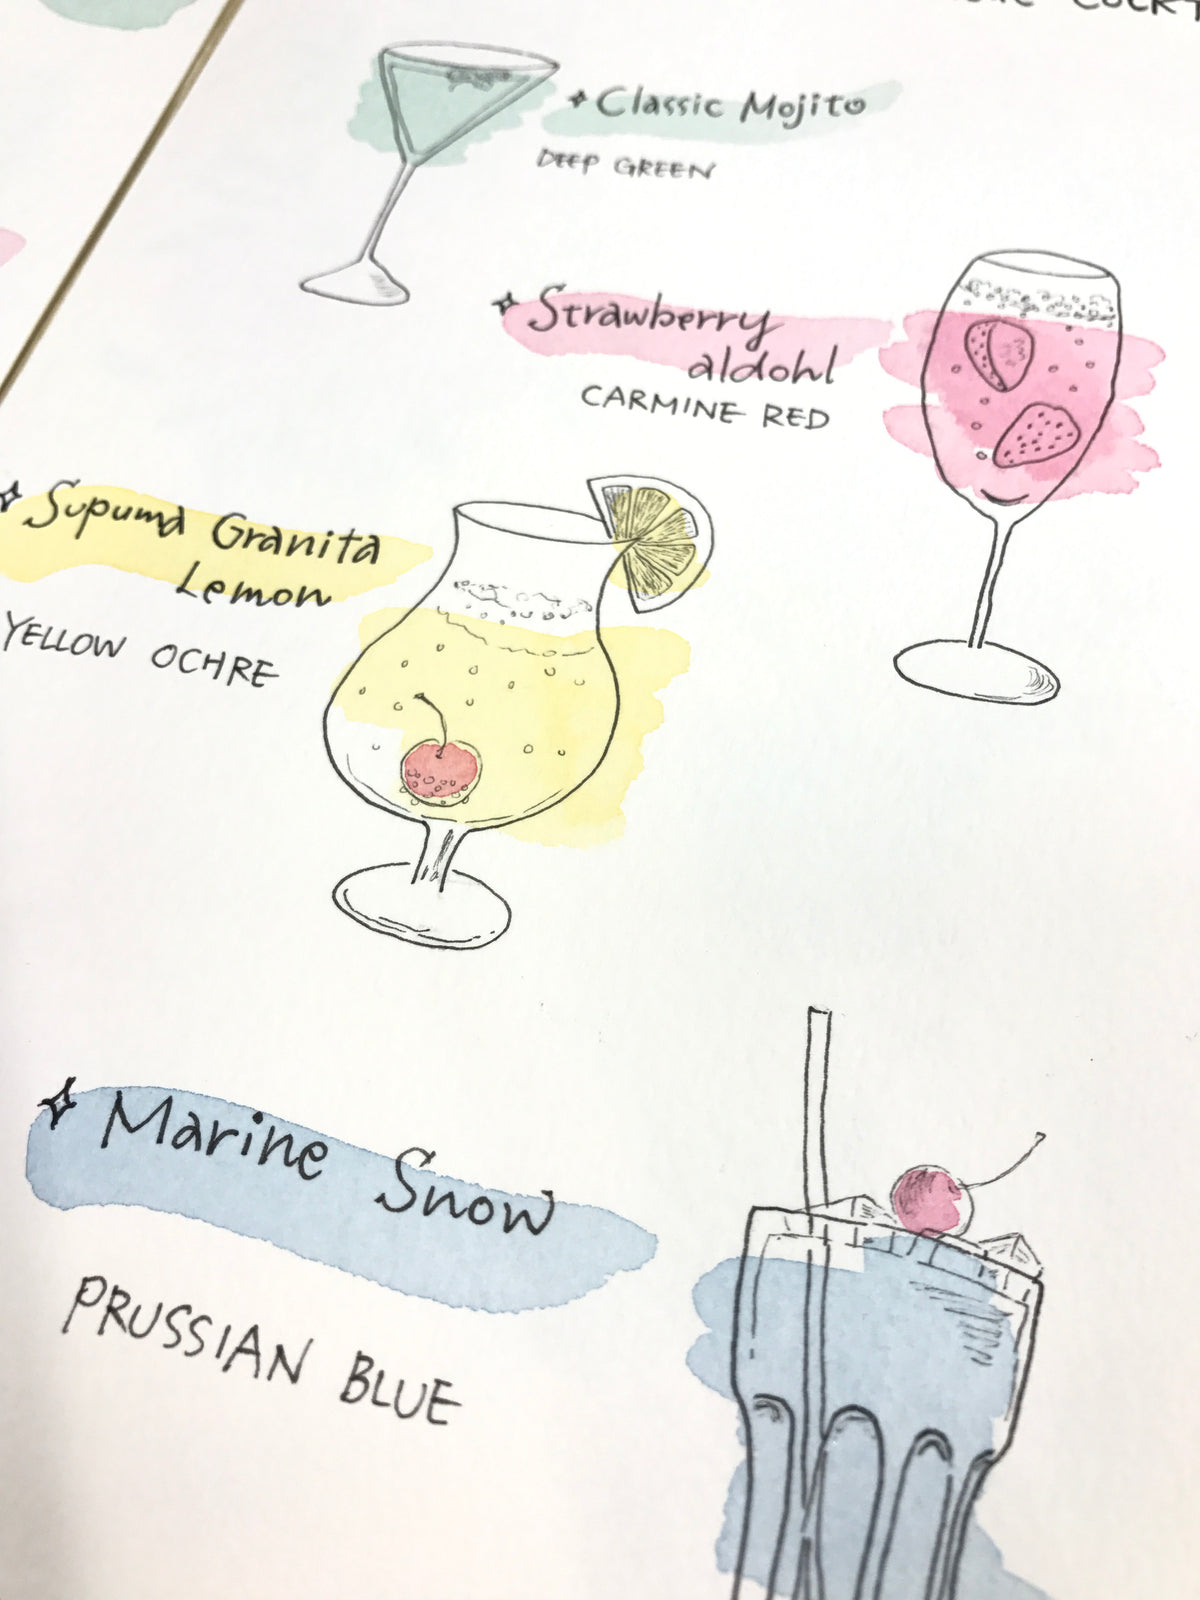 COCKT
✦ Classic Mojito
DEEP GREEN
✦ Strawberry
aldohl
CARMINE RED
✦ Supuma Granita
Lemon
YELLOW OCHRE
✦ Marine Snow
PRUSSIAN BLUE